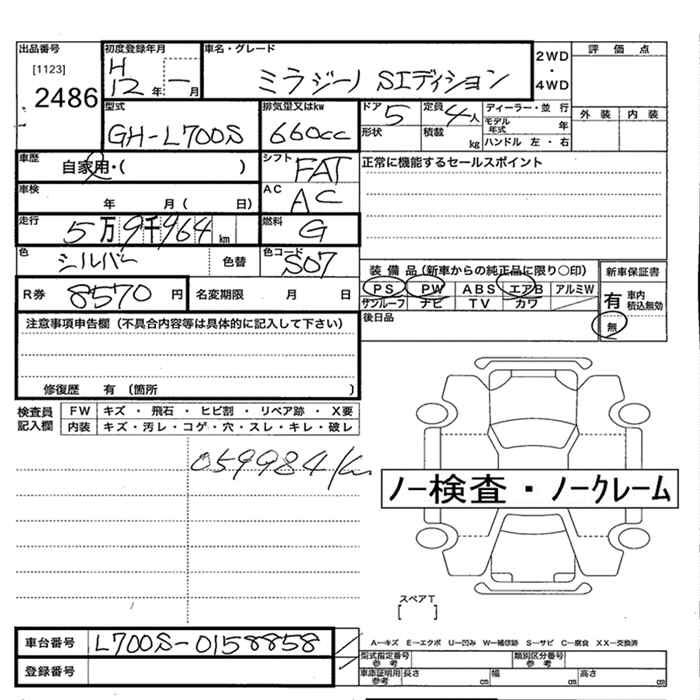 出品番号 初度登録年月 車名・グレード 2WD・4WD 評価点
[1123] H12年一月 ミラジーノ SIディション
2486
型式 排気量又はkw ドア 5 定員 4人 ディーラー・並行 外装 内装
GH-L700S 660cc 形状 積載 kg モデル年式 年
ハンドル 左・右
車歴 自家用・( ) シフト FAT 正常に機能するセールスポイント
車検 年 月( 日) AC AC
走行 5万9千964km 燃料 G
色 シルバー 色替 色コード S07 装備品(新車からの純正品に限り〇印) 新車保証書
R券 8570円 名変期限 月 日 PS PW ABS エアB アルミW 有 車内積込無効
サンルーフ ナビ TV カワ 無
注意事項申告欄(不具合内容等は具体的に記入して下さい) 後日品
修復歴 有 (箇所 )
検査員記入欄 FW キズ・飛石・ヒビ割・リペア跡・X要
内装 キズ・汚レ・コゲ・穴・スレ・キレ・破レ
059984km
ノー検査・ノークレーム
スペアT
[ ]
車台番号 L700S-0158858
登録番号
A―キズ E―エクボ U―凹み W―補修跡 S―サビ C―腐食 XX―交換済
型式指定番号 参考 類別区分番号 参考
車庫証明用 参考 長さ cm 幅 cm 高さ cm